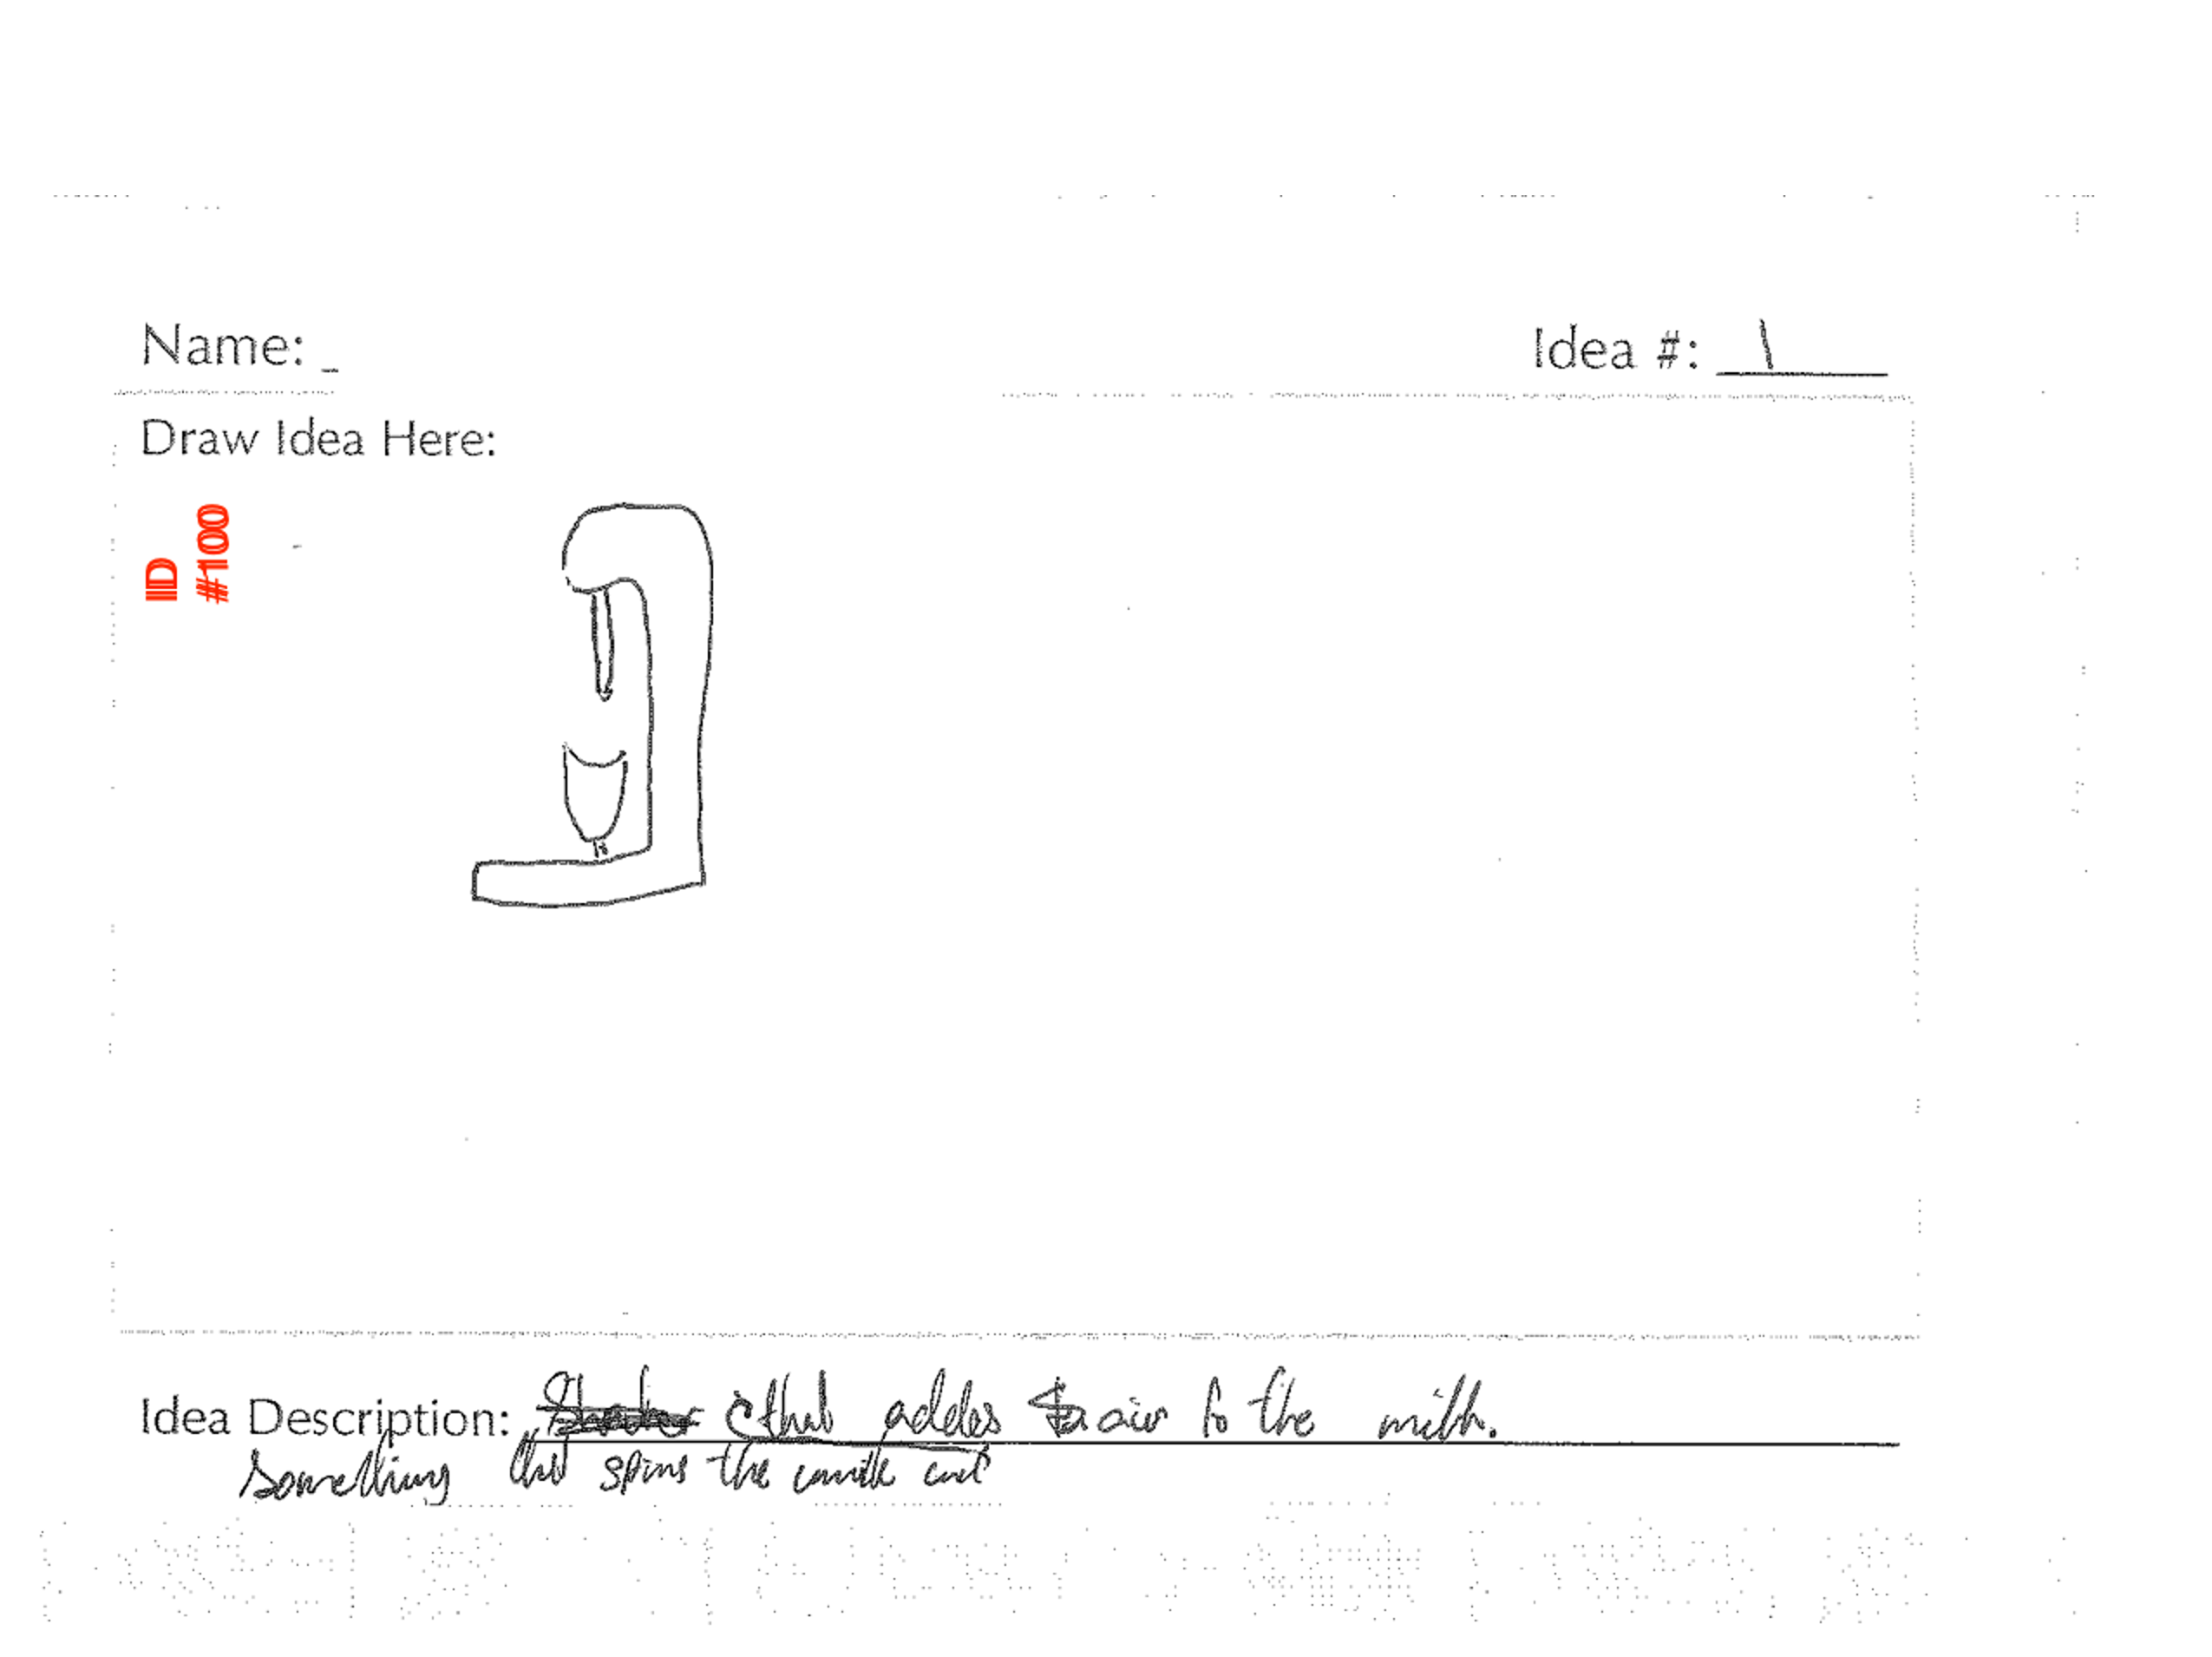 Name:
Idea #: 1
Draw Idea Here:
ID
#100
Idea Description: that addes air to the milk.
Something that spins the milk